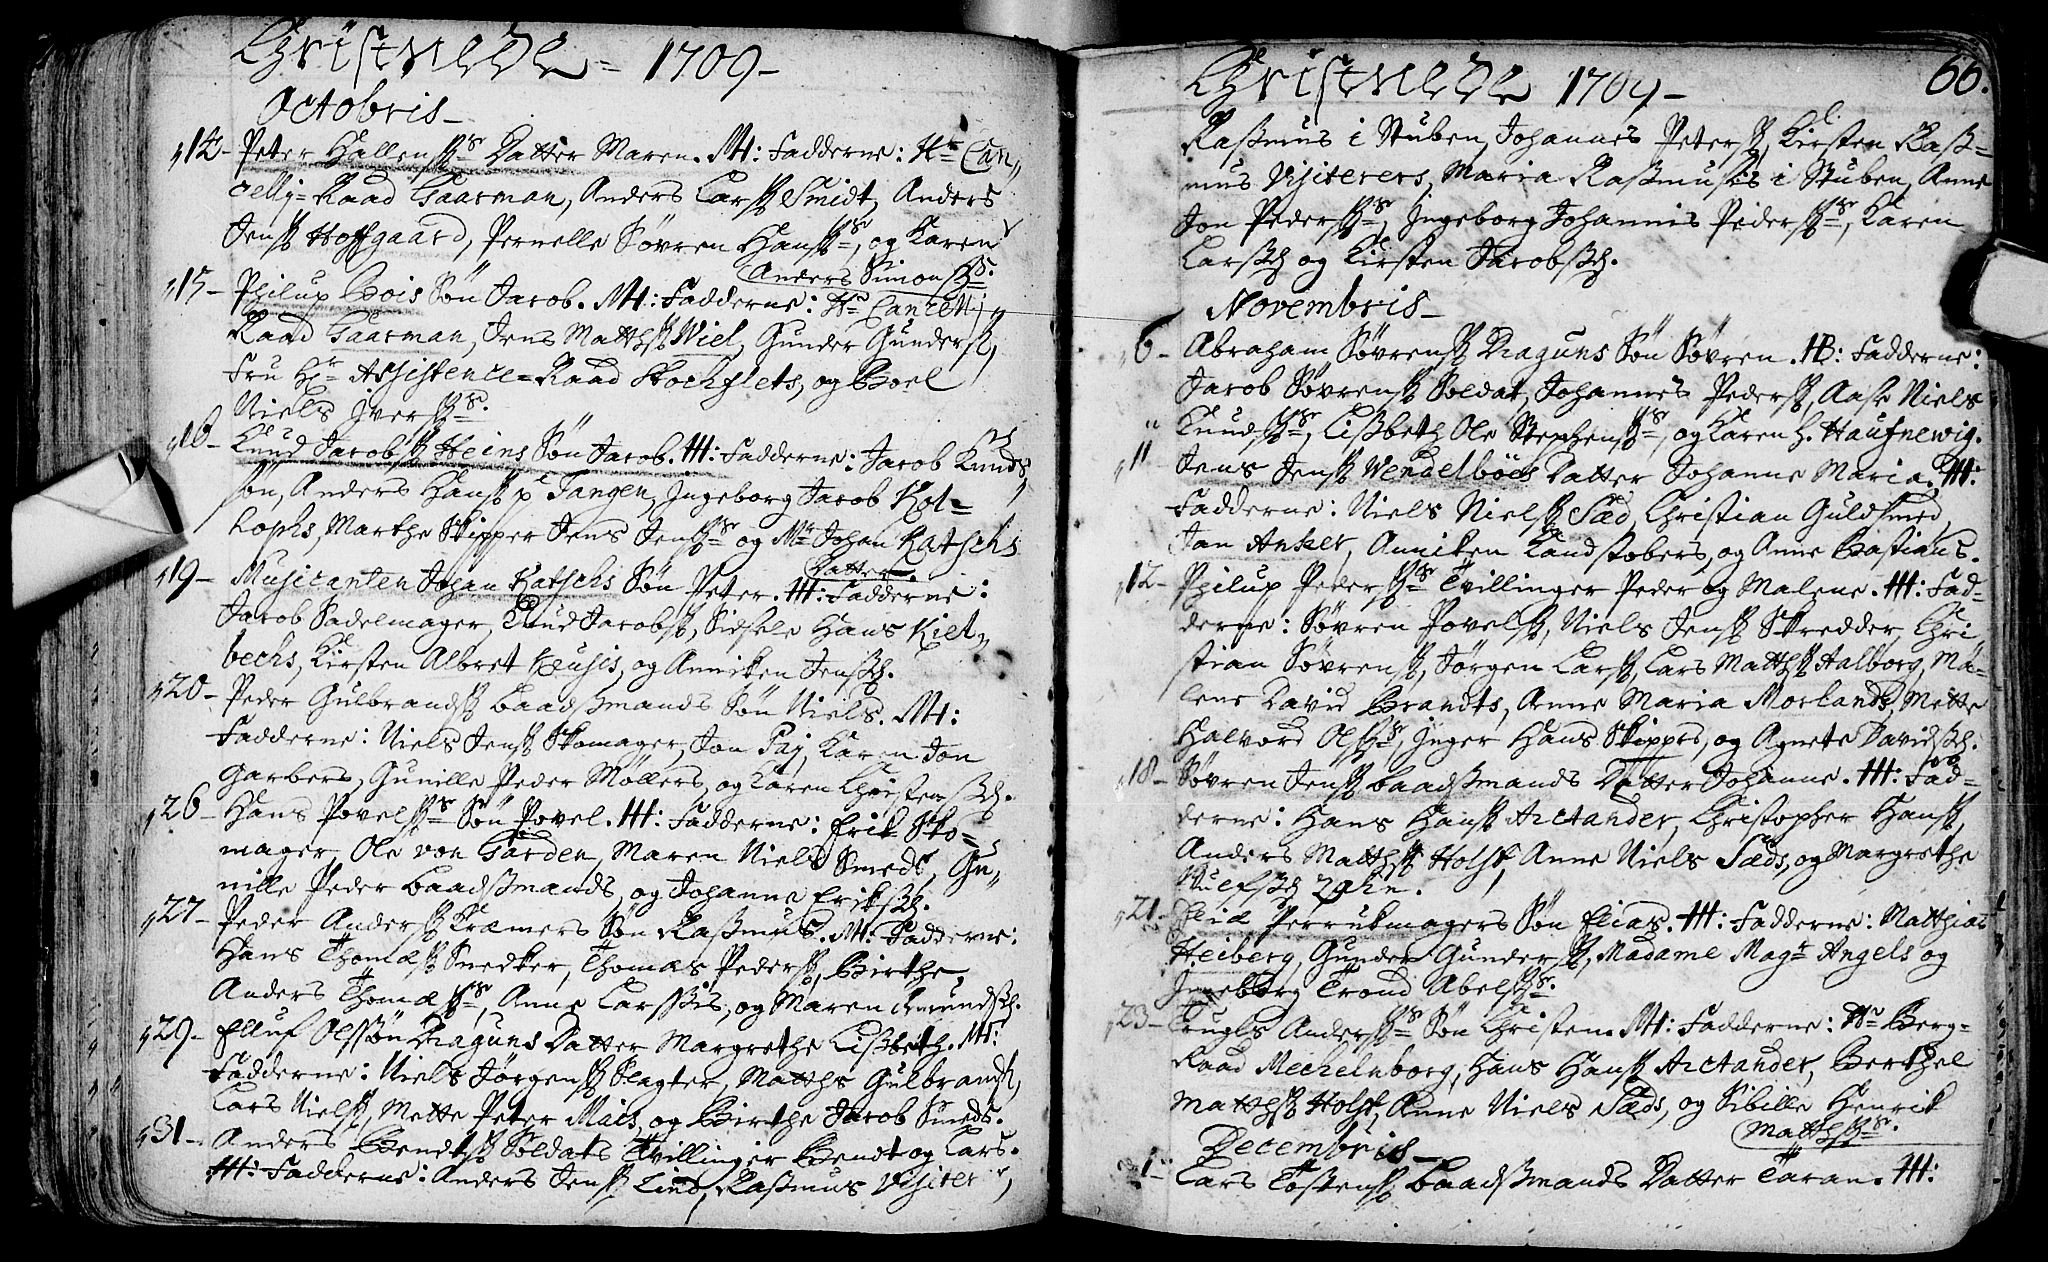 Christnede = 1709 -
Octobris -
12 - Peter Hallensß Datter Maren. M: Fadderne: Hr Can„
celly=Raad Gaarman, Anders Larsß Smidt, Anders
Jensß Hoffgaard, Pernelle Søvren Hansß, og Karen
Anders Simonsß.
15 - Philup Bois Søn Jacob. M: Fadderne: Hr Cancell„
Raad Gaarman, Jens Matthsß Wiel, Gunder Gundersß,
Fru Hr Assistence=Raad Stochflets, og Boel
Niels Iversß.
16 - Knud Jacobsß Heins Søn Jacob. M: Fadderne: Jacob Knuds
søn, Anders Hansß på Tangen, Ingeborg Jacob Kol=
hophs, Marthe Skipper Jens Jensß og Mr Johan Katschs
Datter.
19 - Musicanten Johan Katschs Søn Peter. M: Fadderne:
Jacob Sadelmager, Knud Jacobsß, Sidsele Hans Kiel„
bechs, Kirsten Albret Krusis, og Anniken Jensß.
20 - Peder Gulbrandsß Baadßmands Søn Niels. M:
Fadderne: Niels Jensß Skomager, Jon Paj, Karen Jon
Garbers, Gunille Peder Møllers, og Karen Christensß.
26 - Hans Povelsß Søn Povel. M: Fadderne: Erik Sko=
mager, Ole von Garden, Maren Niels Smeds, Gu„
nille Peder Baadßmands, og Johanne Eriksß.
27 - Peder Andersß Kræmers Søn Raßmus. M: Fadderne:
Hans Thomæsß Snedker, Thomas Pedersß, Birthe
Anders Thomæsß, Anne Larssis, og Maren Amundsß.
29 - Elluf Olssøn Draguns Datter Margrethe Lißbeth. M:
Fadderne: Niels Jørgensß Slagter, Matths Gulbrandsß,
Lars Nielsß, Mette Peter Mais, og Birthe Jacob Smeds.
31 - Anders Bendtsß Soldats Tvillinger Bendt og Lars.
M: Fadderne: Anders Jensß Lind, Raßmus Visiterer,
Christnede 1709 -
66.
Raßmus i Stuben, Johannes Petersß, Kirsten Raß=
mus Visiterers, Maria Raßmusis i Stuben, Anne
Jon Pedersß, Ingeborg Johannis Pedersß, Karen
Larsß og Kirsten Jacobsß.
Novembris -
6 - Abraham Søvrensß Draguns Søn Søvren. HB: Fadderne:
Jacob Søvrensß Soldat, Johannes Pedersß, Aase Niels
Knudsß, Lißbeth Ole Stephensß, og Karen H. Haufnewig.
11 Jens Jensß Vendelböes Datter Johanne Maria. M:
Fadderne: Niels Nielsß Sæd, Christian Guldsmed,
Jan Anker, Anniken Kandstøbers, og Anne Bastians.
12 - Philup Pedersß Tvillinger Peder og Malene. M: Fad=
derne: Søvren Povelsß, Niels Jensß Skredder, Chri
stian Søvrensß, Jørgen Larsß, Lars Matthsß Aalborg, Ma=
lene David Brandts, Anne Maria Morlands, Mette
Halvord Olsß, Inger Hans Skippers, og Agnete Davidsß.
18 - Søvren Jensß Baadßmands Datter Johanne. M: Fad=
derne: Hans Hansß Arctander, Christopher Hansß,
Anders Matthsß Holst, Anne Niels Sæds, og Margrethe
Wulfsß
21 - Eliæ Perrukmagers Søn Elias. M: Fadderne: Matthias
Heiberg, Gunder Gundersß, Madame Magr Angels og
Ingeborg Trond Abelsß.
23 - Trugls Andersß Søn Christen. M: Fadderne: Hr Berg=
Raad Mechelnborg, Hans Hansß Arctander, Berthel
Matthsß Holst, Anne Niels Sæds, og Sibille Henrik
Matthsß.
Decembris -
1 - Lars Tostensß Baadßmands Datter Taran. M: